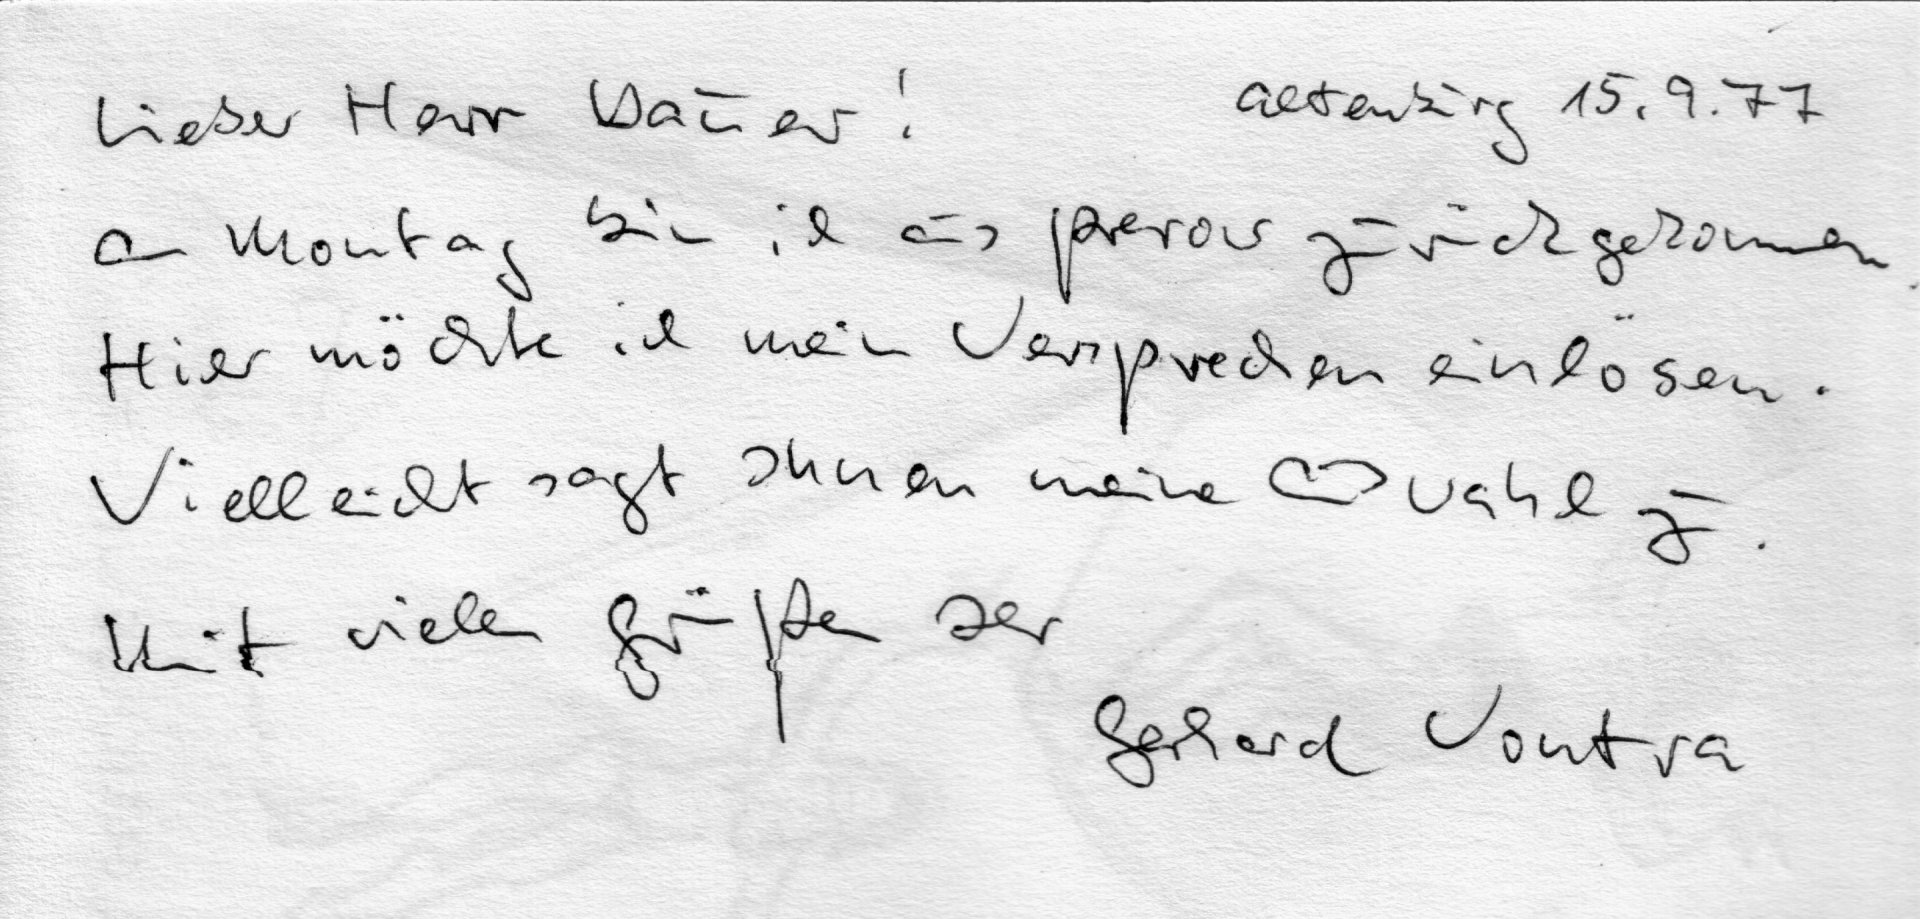 Lieber Herr Bauer! Altenburg 15.9.77
am Montag bin ich aus Prerow zurückgekommen.
Hier möchte ich mein Versprechen einlösen.
Vielleicht sagt Ihnen meine Auswahl zu.
Mit vielen Grüßen Ihr
Gerhard Vontra